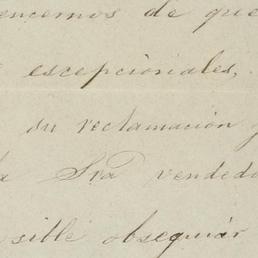 encemos de que
escepcionales,
su reclamación y
la Sra vended
sible obsequiar